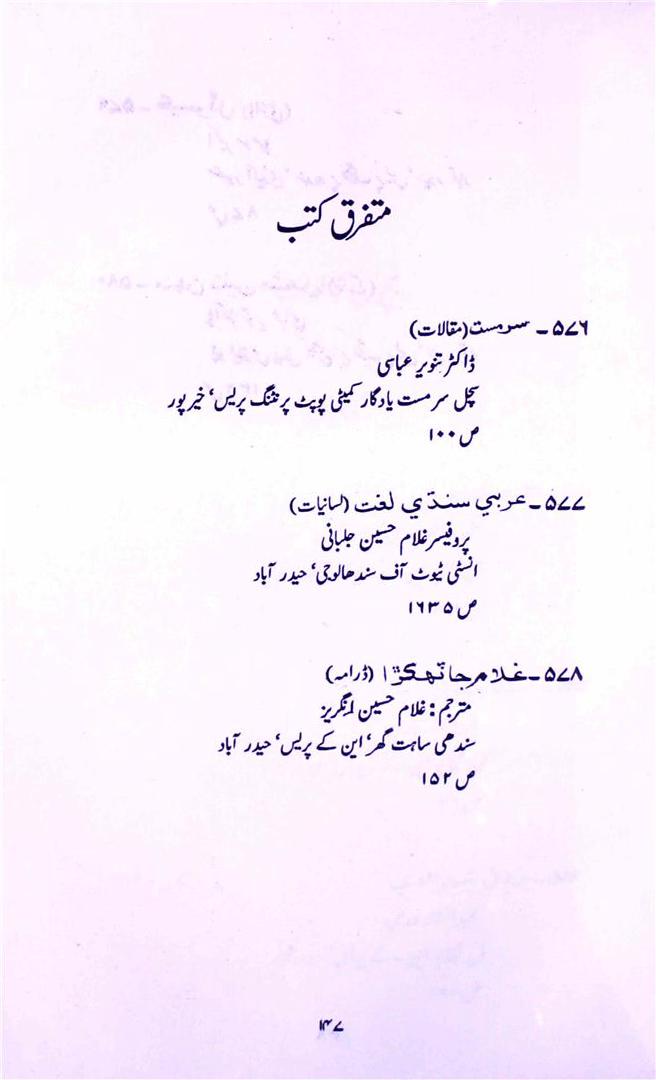 متفرق کتب
۵۷۶ ۔ سرمست (مقالات)
ڈاکٹر تنویر عباسی
سچل سرمست یادگار کمیٹی پوپٹ پرنٹنگ پریس، خیر پور
ص ۱۰۰
۵۷۷ ۔ عربي سنڌي لغت (لسانیات)
پروفیسر غلام حسین جلبانی
انسٹی ٹیوٹ آف سندھالوجی، حیدر آباد
ص ۱۶۳۵
۵۷۸ ۔ غلامر جا ٽهڪڙا (ڈرامہ)
مترجم : غلام حسین رنگریز
سندھی ساہت گھر، این کے پریس، حیدر آباد
ص ۱۵۲
۱۴۷